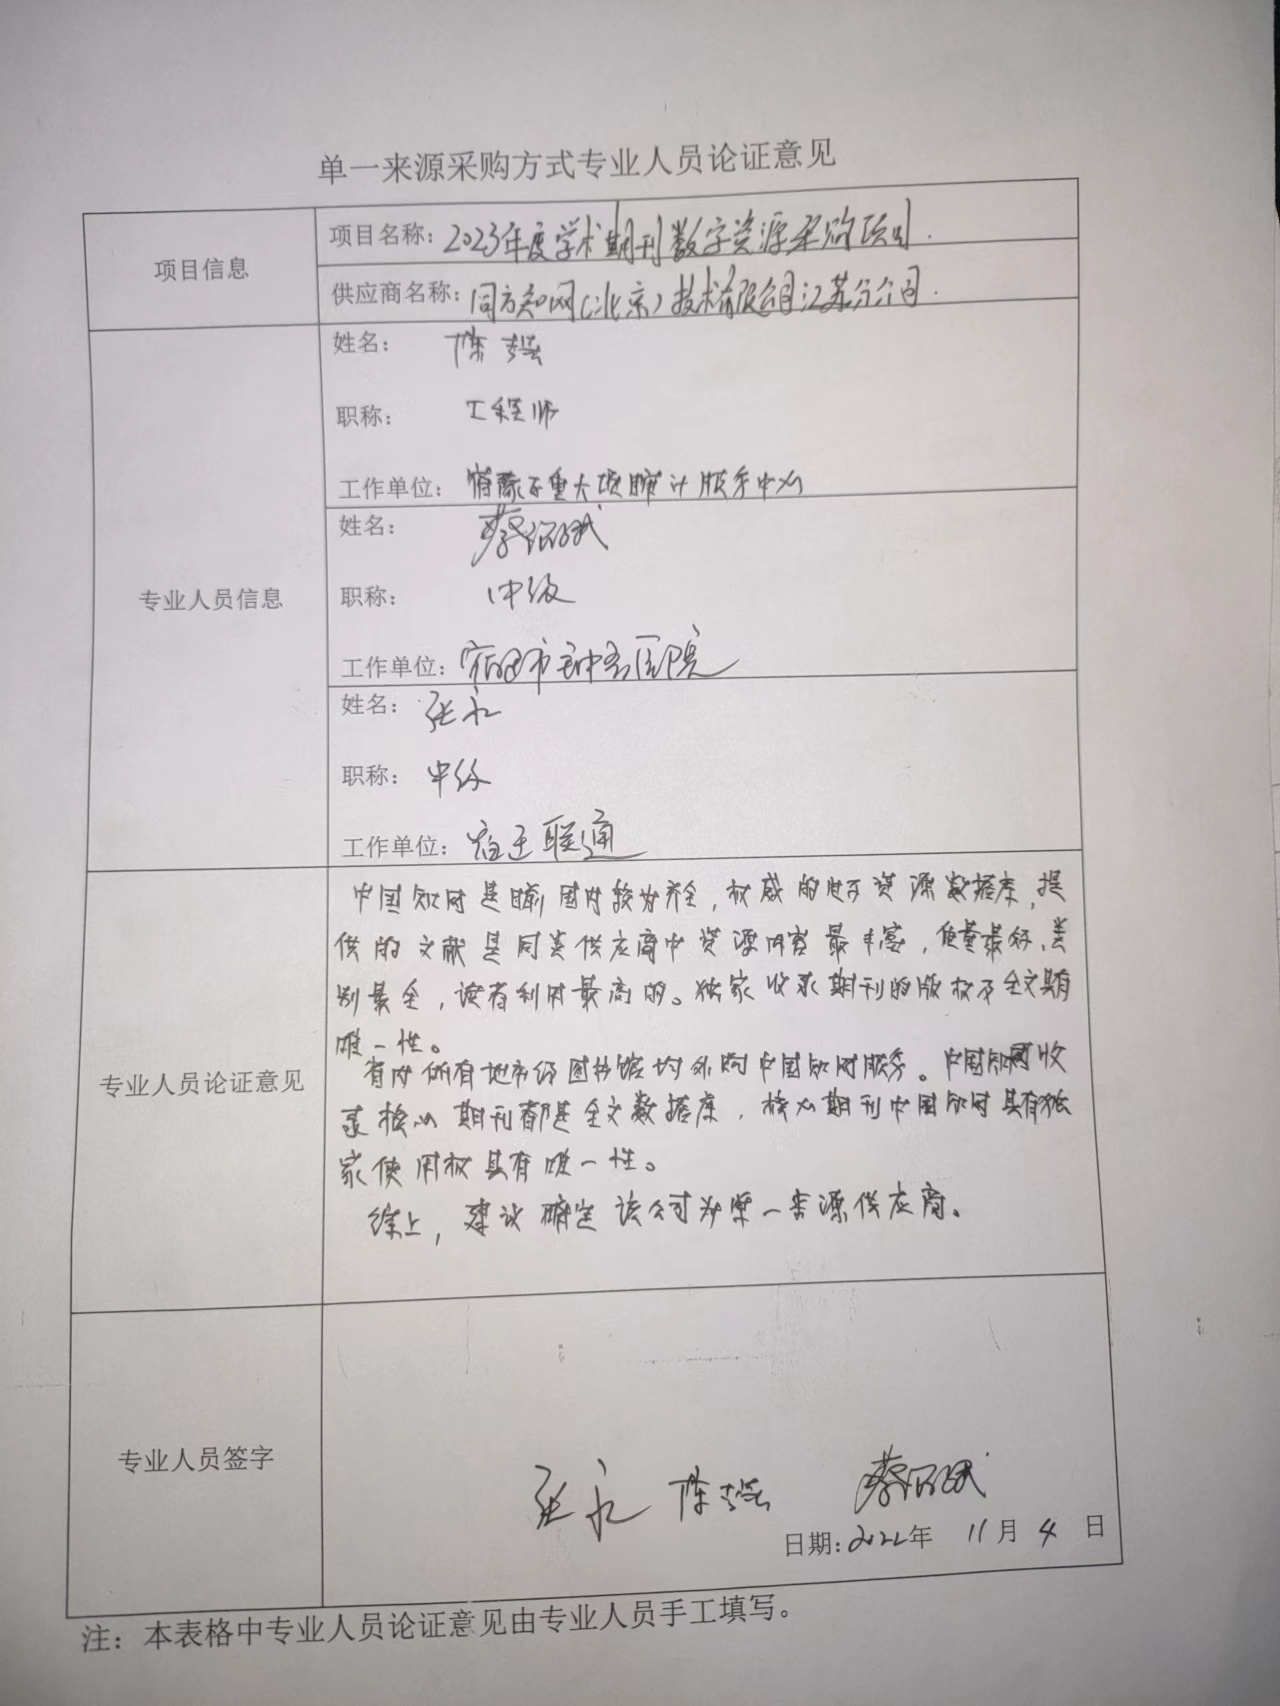 单一来源采购方式专业人员论证意见
项目信息
项目名称：2023年度学术期刊数字资源采购项目.
供应商名称：同方知网（北京）技术有限公司江苏分公司.
专业人员信息
姓名： 陈
职称： 工程师
工作单位： 宿迁市重大项目审计服务中心
姓名： 蔡
职称： 中级
工作单位：宿迁市钟吾医院
姓名： 张永
职称： 中级
工作单位： 宿迁联通
专业人员论证意见
中国知网是目前国内较为齐全，权威的电子资源数据库，提
供的文献是同类供应商中资源内容最丰富，质量最好、类
别最全，读者利用最高的。独家收录期刊的版权及全文具有
唯一性。
省内所有地市级图书馆均采购中国知网服务。中国知网收
录核心期刊都是全文数据库，核心期刊中国知网具有独
家使用权具有唯一性。
综上，建议确定该公司为单一来源供应商。
专业人员签字
张永 陈 蔡
日期：2022年 11月 4 日
注：本表格中专业人员论证意见由专业人员手工填写。